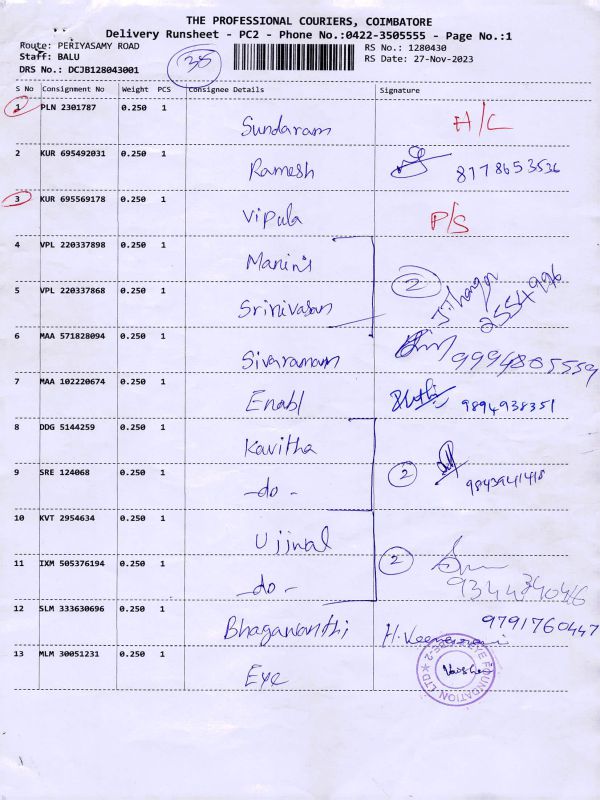 THE PROFESSIONAL COURIERS, COIMBATORE
Delivery Runsheet - PC2 - Phone No.:0422-3505555 - Page No.:1
Route: PERIYASAMY ROAD RS No.: 1280430
Staff: BALU 38 RS Date: 27-Nov-2023
DRS No.: DCJB128043001
S No Consignment No Weight PCS Consignee Details Signature
1 PLN 2301787 0.250 1 Sundaram H/C
2 KUR 695492031 0.250 1 Ramesh 8178653536
3 KUR 695569178 0.250 1 Vipula P/S
4 VPL 220337898 0.250 1 Manin's 2
5 VPL 220337868 0.250 1 Srinivasan 2554996
6 MAA 571828094 0.250 1 Sivaramam 9994805559
7 MAA 102220674 0.250 1 Enabl 9894938351
8 DDG 5144259 0.250 1 Kavitha
9 SRE 124068 0.250 1 -do- 2 9843941418
10 KVT 2954634 0.250 1 Ujjwal
11 IXM 505376194 0.250 1 -do- 2
12 SLM 333630696 0.250 1 Bhagawanthi 9791760447
13 MLM 30051231 0.250 1 Eye
EYE FOUNDATION LTD